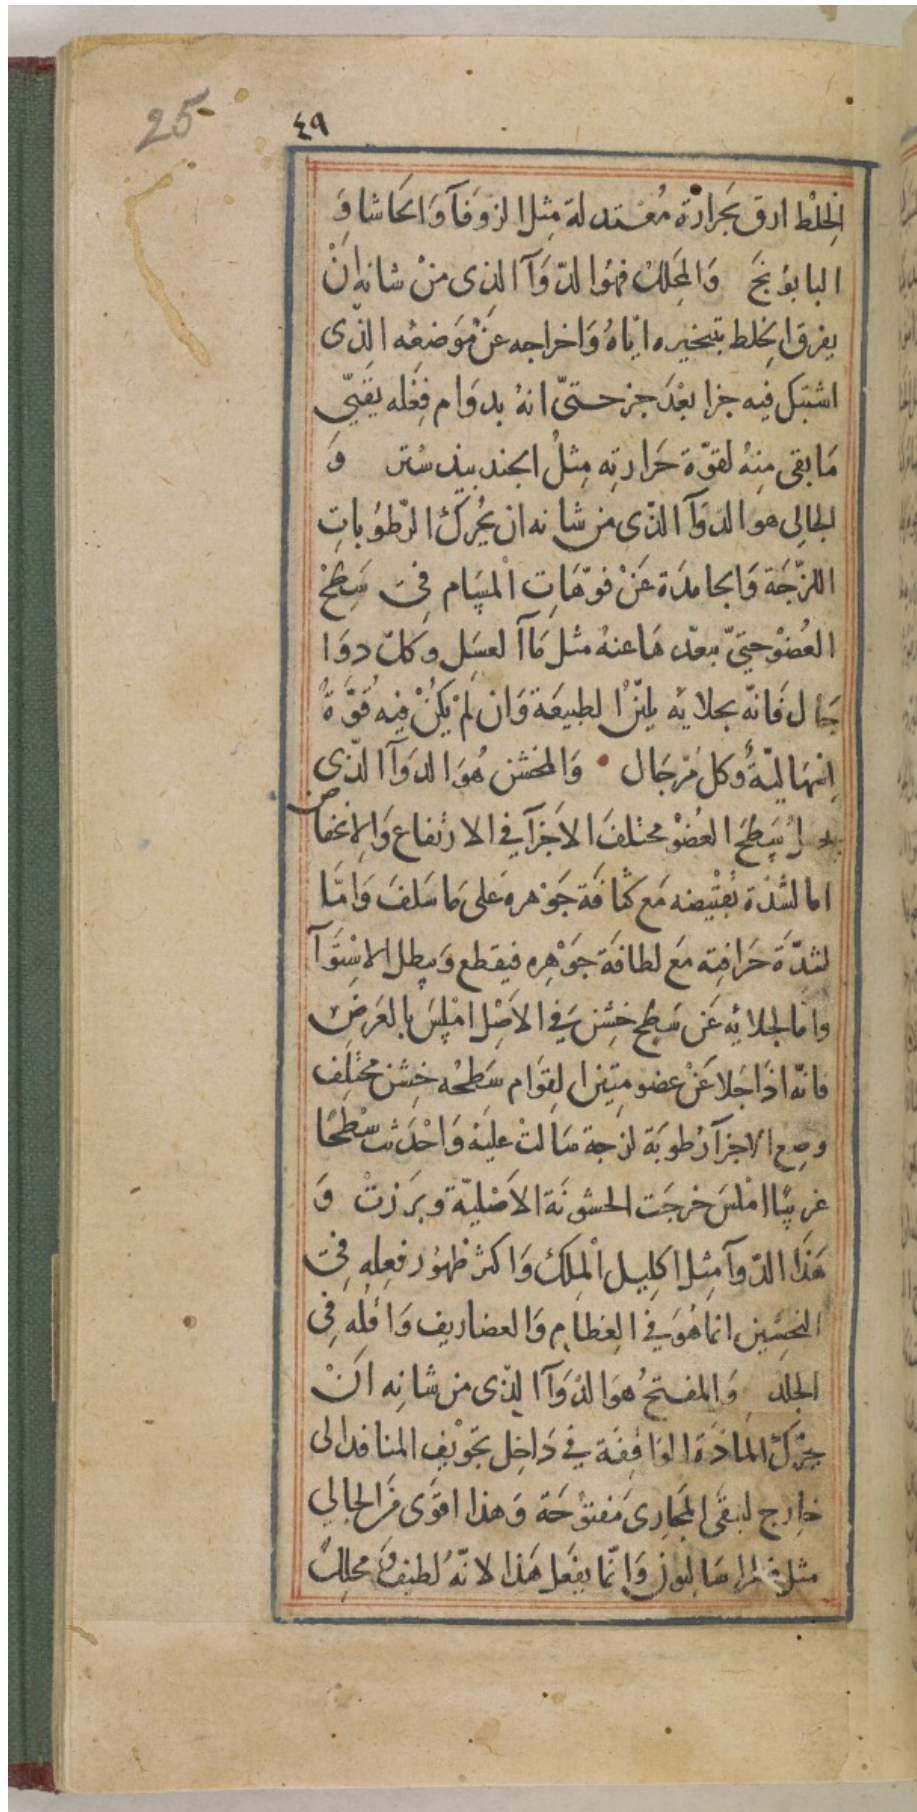 25
٤٩
الخلط ارق بحرارة معتدلة مثل الزوفآ والحاشا و
البابونج والمحلل فهو الدوآ الذى من شانه ان
يفرق الخلط بتبخيره اياه واخراجه عن موضعه الذى
اشتبك فيه جزا بعد جز حتى انه بدوام فعله يفنى
ما بقى منه لقوة حرارته مثل الجند بيدستر و
الجالى هو الدوآ الذى من شانه ان يحرك الرطوبات
اللزجة والجامدة عن فوهات المسام فى سطح
العضو حتى يبعدها عنه مثل مآ العسل وكل دوا
جال فانه بجلايه يلين الطبيعة وان لم يكن فيه قوة
اسهالية وكل مر جال والمخشن هو الدوآ الذى
سطح العضو مختلف الاجزآ في الارتفاع والانخفاض
اما لشدة تقبيضه مع كثافة جوهره على ما سلف واما
لشدة حرافته مع لطافة جوهره فيقطع ويبطل الاستوآ
واما لجلايه عن سطح خشن في الاصل املس بالعرض
فانه اذا جلا عن عضو متين القوام سطحه خشن مختلف
وضع الاجزآ رطوبة لزجة سالت عليه واحدثت سطحا
غريبا املس خرجت الخشونة الاصلية وبرزت و
هذا الدوآ مثل اكليل الملك واكثر ظهور فعله فى
التخشين انما هو في العظام والغضاريف واقله فى
الجلد والمفتح هو الدوآ الذى من شانه ان
يحرك المادة الواقفة في داخل تجويف المنافذ الى
خارج لتبقى المجارى مفتوحة وهذا اقوى من الجالي
مثل فطراساليون وانما يفعل هذا لانه لطيف ومحلل